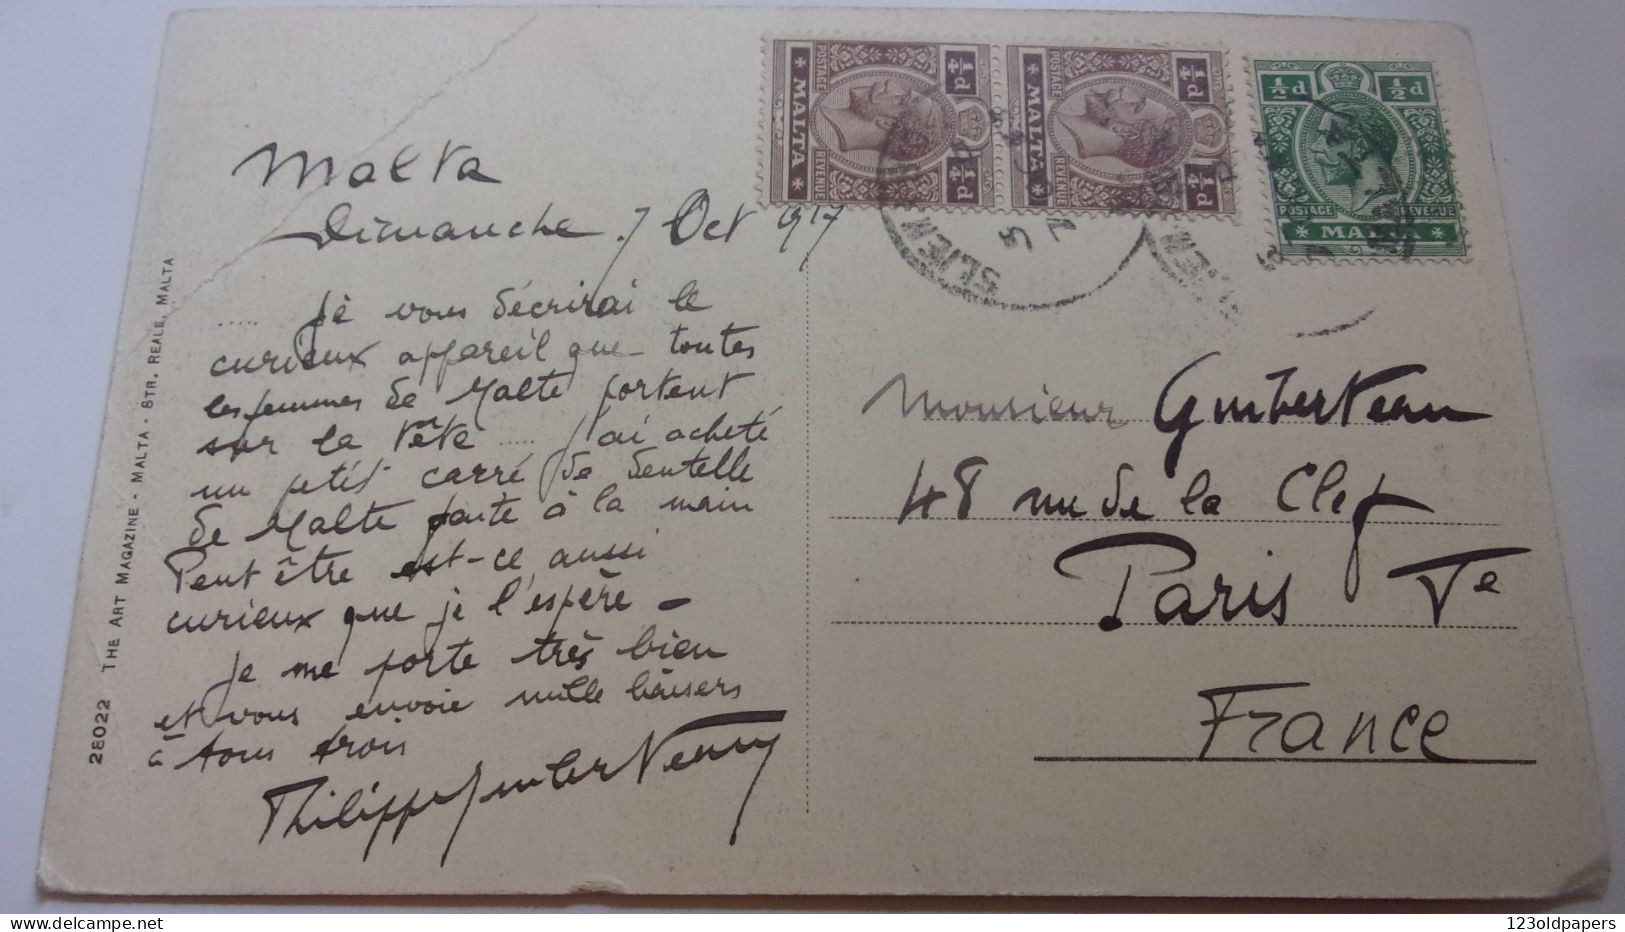 Malta
Dimanche 7 Oct 1917
..... Je vous décrirai le
curieux appareil que toutes
les femmes de Malte portent
sur la tête ..... J'ai acheté
un petit carré de dentelle
de Malte faite à la main
Peut être est-ce aussi
curieux que je l'espère -
Je me porte très bien
et vous envoie mille baisers
à tous trois
Philippe Gumberteau
28022 THE ART MAGAZINE - MALTA - STR. REALE, MALTA
¼d ¼d
MALTA
POSTAGE REVENUE
¼d ¼d
MALTA
POSTAGE REVENUE
½d ½d
POSTAGE REVENUE
MALTA
SLIEM
Monsieur Gumberteau
48 rue de la Clef
Paris Ve
France
123oldpapers